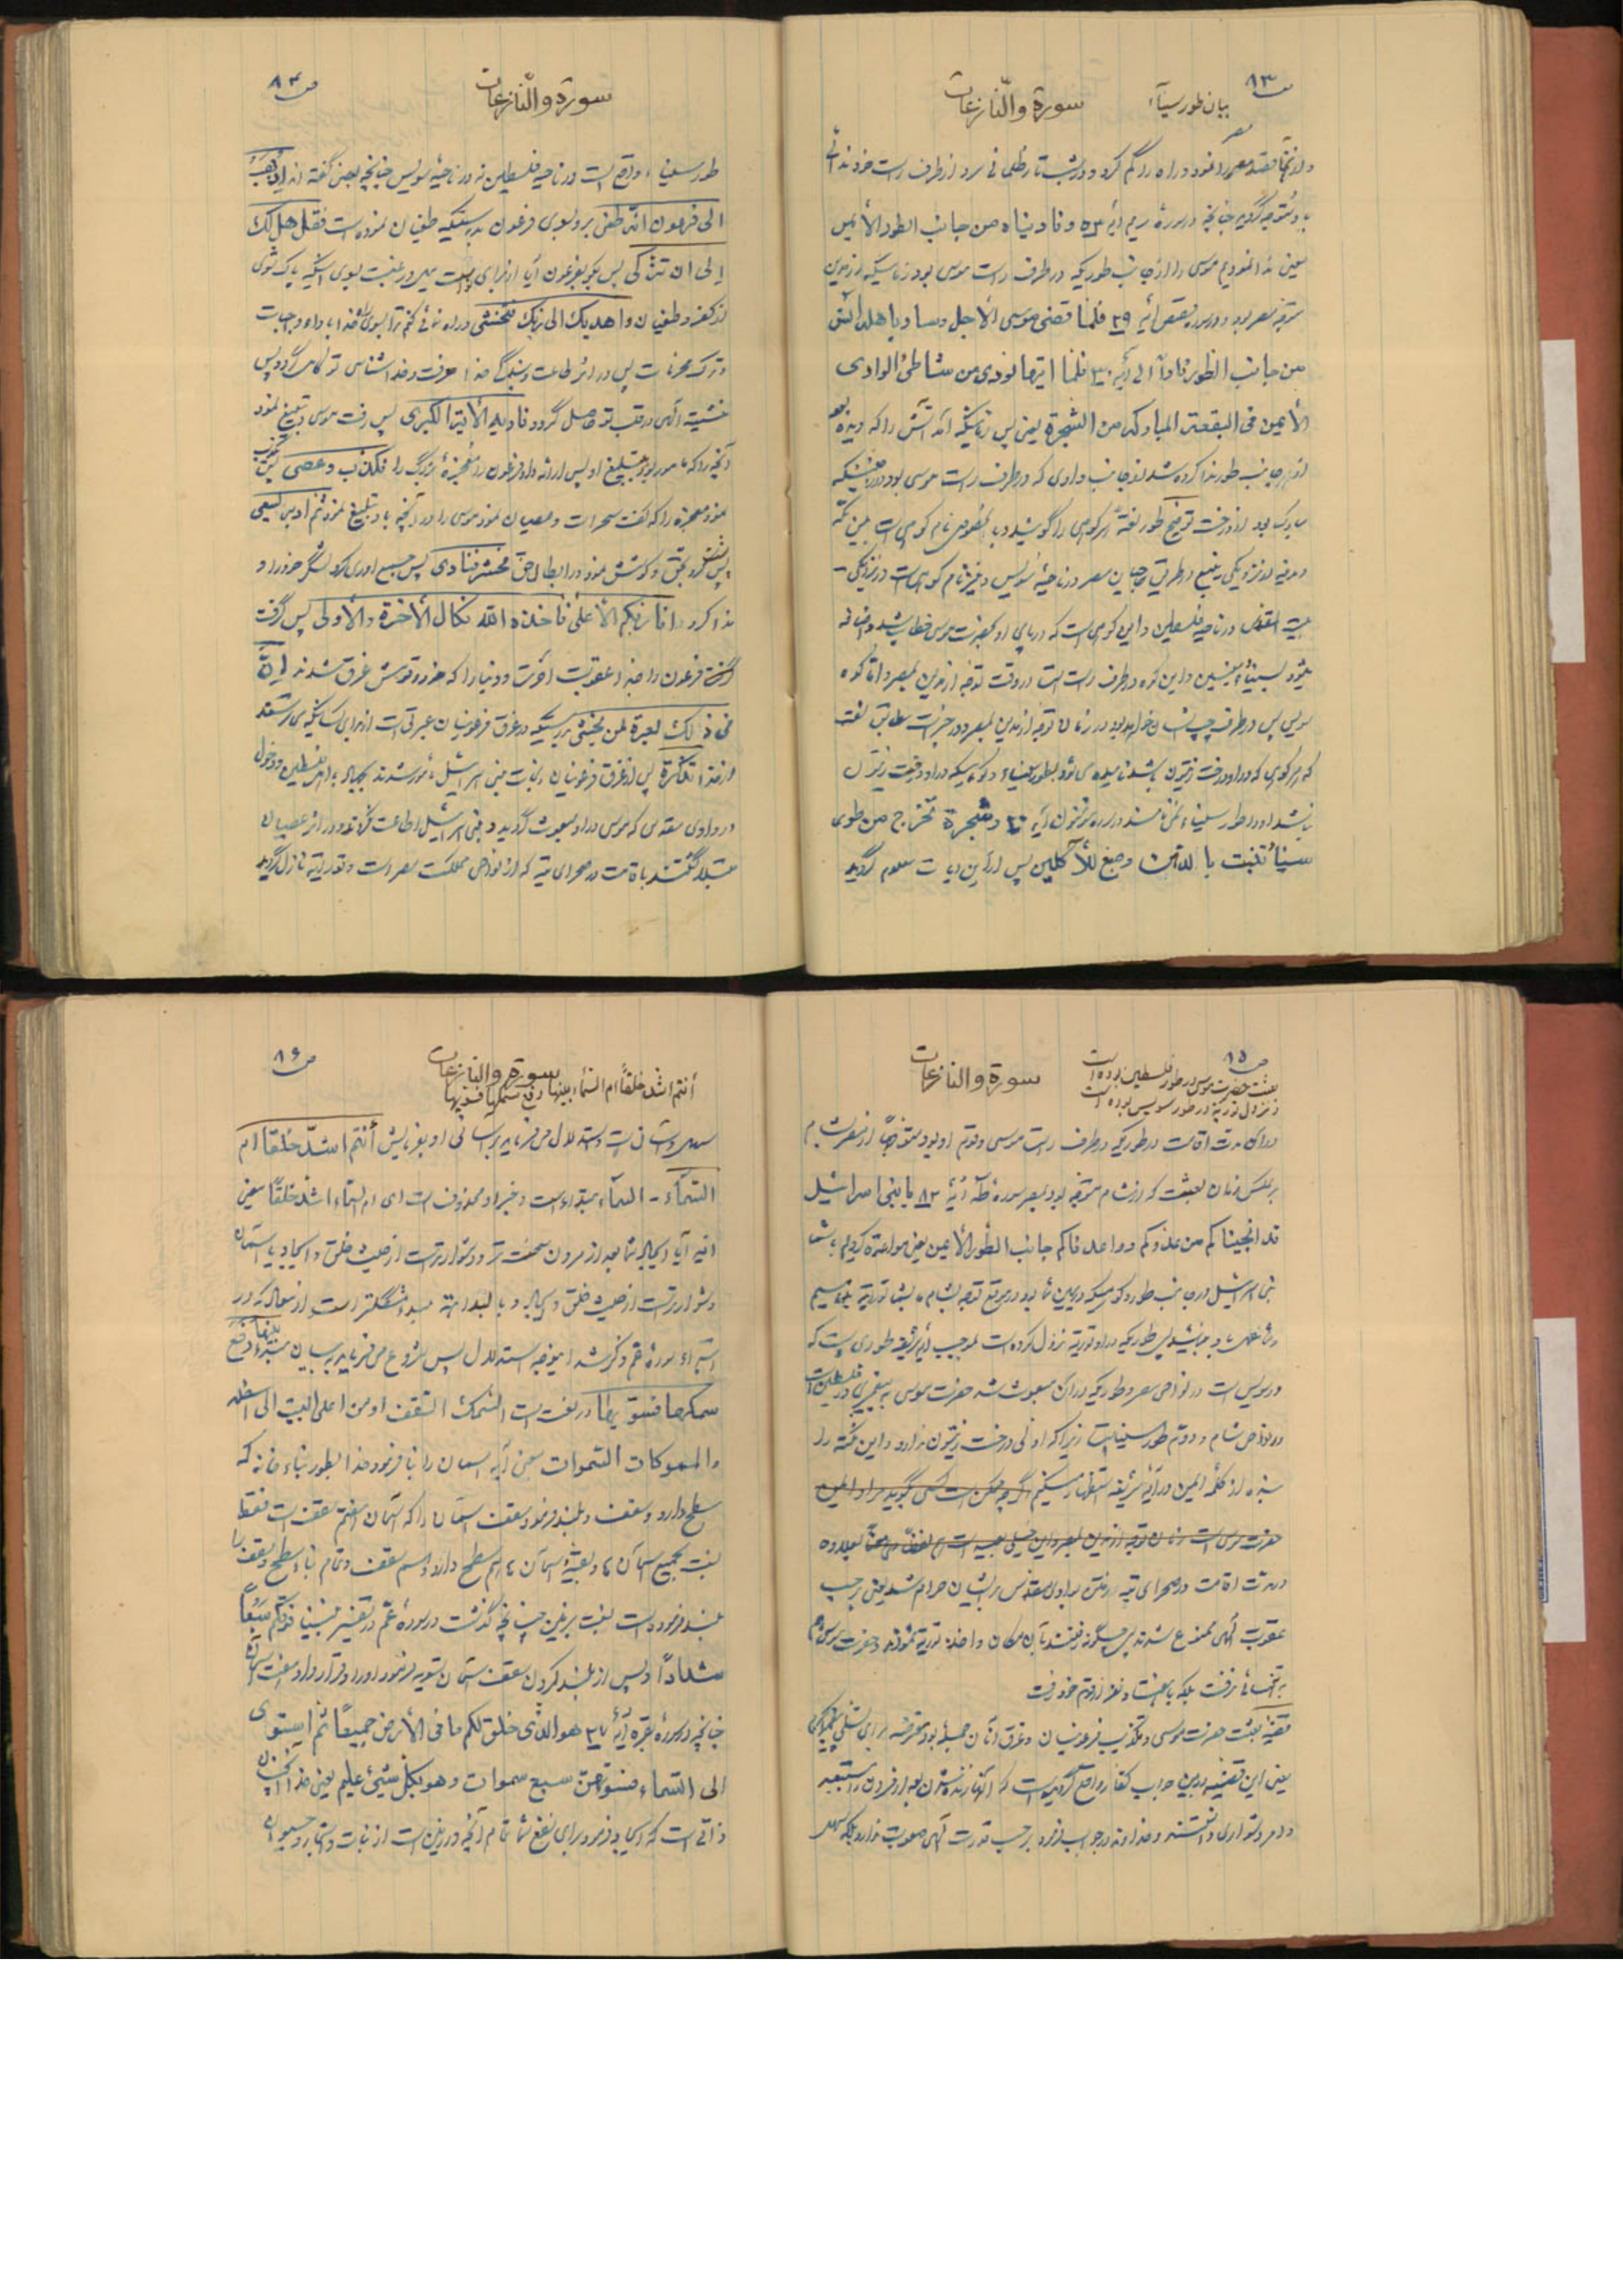 ص ۸۳
بیان طور سیناء
سورة والنّازعات
و از آنجا قصد مصر را نمود و راه را گم کرد و در شب تار ظلمانی سرد از طرف راست خود ندائی
باو متوجه گردید چنانچه در سوره مریم آیه ۵۳ و نادیناه من جانب الطور الأیمن
یعنی ندا نمودیم موسی را از جانب طوریکه در طرف راست موسی بود زمانیکه از مدین
متوجه مصر بود و در سوره قصص آیه ۲۹ فلمّا قضی موسی الأجل و سار باهله آنس
من جانب الطور نارا الی آیه ۳۰ فلمّا اتیها نودی من شاطئ الوادی
الأیمن فی البقعة المبارکة من الشجرة یعنی پس زمانیکه آمد آتش را که دیده بود
از جانب طور ندا کرده شد از جانب وادی که در طرف راست موسی بود در
مبارک بود از درخت توضیح طور لغةً هر کوهی را گویند و بالخصوص نام کوهی است بین مکه
و مدینه در نزدیکی ینبع در طریق حاجیان مصر در ناحیه سویس و نیز نام کوهی است در نزدیکی
بیت المقدس در ناحیه فلسطین و این کوهی است که در پای او بحضرت موسی خطاب شد و اضافه
میشود بسیناء و سینین و این کوه در طرف راست است در وقت توجه از مدین بمصر و اما کوه
سویس پس در طرف چپ انسان خواهد بود در زمان توجه از مدین بمصر و در
که هر کوهی که در او درخت زیتون باشد نامیده میشود بطور سیناء و کوهیکه در او درخت زیتون
نباشد او را طور سیناء نمی نامند در سوره مؤمنون آیه ۲۰ و شجرة تخرج من طور
سیناء تنبت بالدهن و صبغ للآکلین پس از این آیات معلوم گردید
ص ۸۴
سورة والنّازعات
طور سیناء واقع است در ناحیه فلسطین نه در ناحیه سویس چنانچه بعضی گفته اند اذهب
الی فرعون انّه طغی برو بسوی فرعون بدرستیکه طغیان نموده است فقل هل لک
الی ان تزکّی پس بگو بفرعون آیا از برای تو است میل و رغبت بسوی اینکه پاک شوی
از کفر و طغیان و اهدیک الی ربّک فتخشی و راه نمائی کنم ترا بسوی خدا باداء واجبات
و ترک محرمات پس در اثر طاعت و بندگی خدا معرفت و خدا شناسی تو کامل گردد پس
خشیت الهی در قلب تو حاصل گردد فاریه الأیة الکبری پس رفت موسی و تبلیغ نمود
آنچه را که مامور بود بتبلیغ او پس ارائه داد فرعون را معجزه بزرگ را فکذّب و عصی پس تکذیب
نمود معجزه را که گفت سحر است و عصیان نمود موسی را در آنچه باو تبلیغ نمود ثم ادبر یسعی
پس پشت کرد بحق و کوشش نمود در ابطال حق فحشر فنادی پس جمع آوری کرد لشگر خود را و
ندا کرد انا ربّکم الأعلی فاخذه الله نکال الأخرة و الأولی پس گرفت
فرعون را خدا عقوبت آخرت و دنیا را که خود و قومش غرق شدند انّ
فی ذلک لعبرة لمن یخشی بدرستیکه در غرق فرعونیان عبرتی است از برای کسانیکه می ترسند
از خدا تذکرة پس از غرق فرعونیان و نجات بنی اسرائیل مأمور شدند بجهاد با اهل فلسطین و دخول
در وادی مقدس که موسی در او مبعوث گردید و بنی اسرائیل اطاعت نکردند و در اثر عصیان
مبتلا گشتند باقامت در صحرای تیه که از نواحی مملکت مصر است و توریة نازل گردید
ص ۸۵
بعثت حضرت موسی در طور فلسطین بوده است
و نزول توریة در طور سویس بوده است
سورة والنازعات
در آن مدت اقامت در طوریکه در طرف راست موسی و قوم او بود متوجهاً از مصر بشام
بر عکس زمان بعثت که از شام متوجه بود بمصر سوره طه آیه ۸۰ یا بنی اسرائیل
قد انجیناکم من عدوّکم و واعدناکم جانب الطور الأیمن یعنی مواعده کردیم با شما
بنی اسرائیل در جانب طور و کوهیکه در یمین شما بود در موقع توجه بشام بشما توریة بدهیم
پس طوریکه در او توریة نزول کرده است بموجب آیه شریفه طوری است که
در سویس است در نواحی مصر و طوریکه در آن مبعوث شد حضرت موسی به پیغمبری در فلسطین است
در نواحی شام و دوم طور سینا است زیرا که اولی درخت زیتون ندارد و این نکته را
بنده از کلمه ایمن در آیه شریفه استظهار میکنم اگر چه ممکن است کسی گوید مراد از ایمن
حضرت موسی است زمان توجه از مدین بمصر و این خیلی بعید است لفظاً و معناً بعلاوه
در مدت اقامت در صحرای تیه رفتن بوادی مقدس برایشان حرام شد یعنی بر حسب
عقوبت الهی ممنوع شدند پس چگونه رفتند بآن مکان و اخذ توریة نمودند و حضرت موسی هم
به تنهائی نرفت بلکه با هفتاد نفر از قوم خود رفت
قضیه بعثت حضرت موسی و تکذیب فرعونیان و غرق آنان جمله بود معترضه برای تسلی پیغمبر اکرم
یعنی این قضیه در بین جواب کفار واقع گردیده است که آنها زنده شدن بعد از مردن را مستبعد
و امر دشواری دانستند و خداوند در جواب فرمود بر حسب قدرت الهی صعوبت ندارد بلکه سهل
ص ۸۶
سورة والنازعات
أنتم اشدّ خلقاً ام السّماء بنیها رفع سمکها فسوّیها
سهل و آسان است و استدلال میفرماید بر آسانی او بفرمایش أنتم اشدّ خلقا ام
السّماء - السماء مبتداء است و خبر او محذوف است ای ام السماء اشدّ خلقاً یعنی
آیا ایجاد شما بعد از مردن سخت تر و دشوارتر است از حیث خلق و ایجاد یا آسمان
دشوارتر است از حیث خلق و ایجاد و بالبداهة
ابتداء سوره عمّ ذکر شد استدلال پس شروع میفرماید به بیان مبتداء بنیها رفع
سمکها فسوّیها در لغت است السّمک السّقف او من اعلی البیت الی اسفله
والمسموکات السموات یعنی آیه آسمان را بنا فرمود خدا بطور بناء خانه که
سطح دارد و سقف و بلند فرمود سقف آسمان را که آسمان هفتم سقف است فقط
نسبت بجمیع آسمان ها و بقیه آسمان ها هم سطح دارد و هم سقف و تمام بناء سطح و سقف را
بلند فرموده است نسبت بزمین چنانچه گذشت در سوره عمّ در تفسیر و بنینا فوقکم سبعاً
شداداً و پس از بلند کردن سقف آسمان تسویه فرمود او را و قرار داد هفت آسمان
چنانچه در سوره بقره آیه ۲۷ هو الّذی خلق لکم ما فی الأرض جمیعًا ثم استوی
الی السّماء فسوّیهنّ سبع سموات و هو بکل شیئ علیم یعنی خدا آنچنان
ذاتی است که ایجاد فرمود برای نفع شما تمام آنچه در زمین است از نبات و اشجار و حیوان